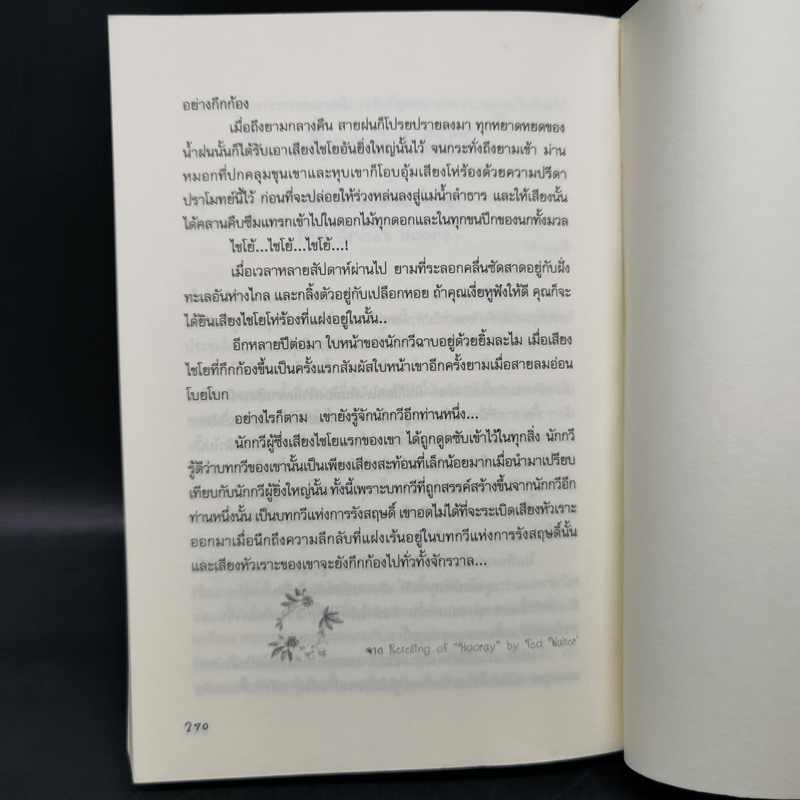 อย่างกึกก้อง
เมื่อถึงยามกลางคืน สายฝนก็โปรยปรายลงมา ทุกหยาดหยดของ
น้ำฝนนั้นก็ได้รับเอาเสียงไชโยอันยิ่งใหญ่นั้นไว้ จนกระทั่งถึงยามเช้า ม่าน
หมอกที่ปกคลุมขุนเขาและหุบเขาก็โอบอุ้มเสียงโห่ร้องด้วยความปรีดา
ปราโมทย์นี้ไว้ ก่อนที่จะปล่อยให้ร่วงหล่นลงสู่แม่น้ำลำธาร และให้เสียงนั้น
ได้คลานคืบซึมแทรกเข้าไปในดอกไม้ทุกดอกและในทุกขนปีกของนกทั้งมวล
ไชโย้...ไชโย้...ไชโย้...!
เมื่อเวลาหลายสัปดาห์ผ่านไป ยามที่ระลอกคลื่นซัดสาดอยู่กับฝั่ง
ทะเลอันห่างไกล และกลิ้งตัวอยู่กับเปลือกหอย ถ้าคุณเงี่ยหูฟังให้ดี คุณก็จะ
ได้ยินเสียงไชโยโห่ร้องที่แฝงอยู่ในนั้น..
อีกหลายปีต่อมา ใบหน้าของนักกวีฉาบอยู่ด้วยยิ้มละไม เมื่อเสียง
ไชโยที่กึกก้องขึ้นเป็นครั้งแรกสัมผัสใบหน้าเขาอีกครั้งยามเมื่อสายลมอ่อน
โบยโบก
อย่างไรก็ตาม เขายังรู้จักนักกวีอีกท่านหนึ่ง...
นักกวีผู้ซึ่งเสียงไชโยแรกของเขา ได้ถูกดูดซับเข้าไว้ในทุกสิ่ง นักกวี
รู้ดีว่าบทกวีของเขานั้นเป็นเพียงเสียงสะท้อนที่เล็กน้อยมากเมื่อนำมาเปรียบ
เทียบกับนักกวีผู้ยิ่งใหญ่นั้น ทั้งนี้เพราะบทกวีที่ถูกสรรค์สร้างขึ้นจากนักกวีอีก
ท่านหนึ่งนั้น เป็นบทกวีแห่งการรังสฤษดิ์ เขาอดไม่ได้ที่จะระเบิดเสียงหัวเราะ
ออกมาเมื่อนึกถึงความลึกลับที่แฝงเร้นอยู่ในบทกวีแห่งการรังสฤษดิ์นั้น
และเสียงหัวเราะของเขาจะยังกึกก้องไปทั่วทั้งจักรวาล...
จาก Retelling of "Hooray" by Ted Walter
290